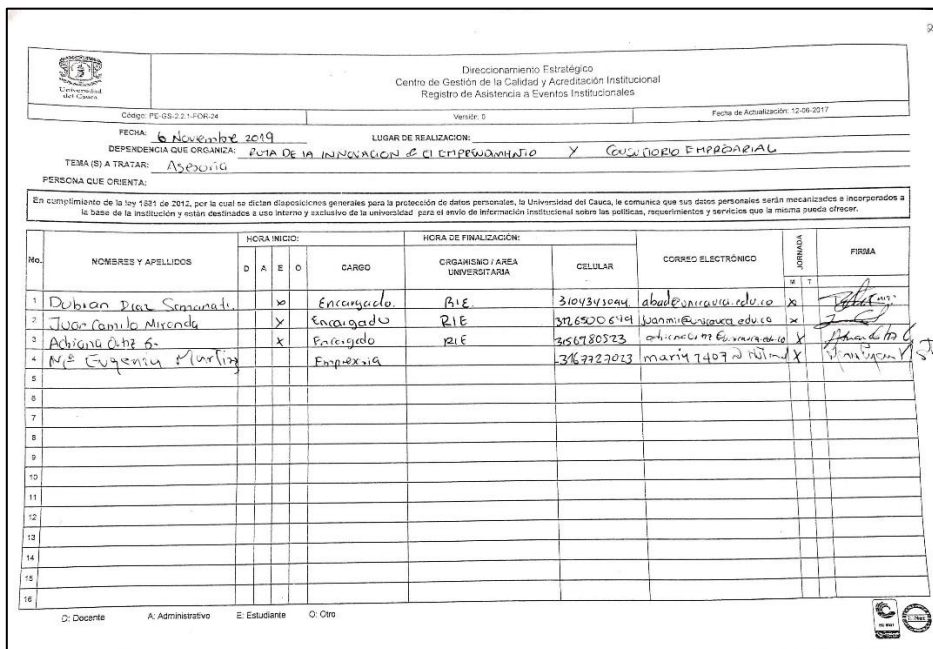 Universidad
del Cauca
Direccionamiento Estratégico
Centro de Gestión de la Calidad y Acreditación Institucional
Registro de Asistencia a Eventos Institucionales
Código: PE-GS-2.2.1-FOR-24 Versión: 0 Fecha de Actualización: 12-06-2017
FECHA: 6 Noviembre 2019 LUGAR DE REALIZACION:
DEPENDENCIA QUE ORGANIZA: RUTA DE LA INNOVACION & EL EMPRENDIMIENTO Y CONSULTORIO EMPRESARIAL
TEMA (S) A TRATAR: Asesoria
PERSONA QUE ORIENTA:
En cumplimiento de la ley 1581 de 2012, por la cual se dictan disposiciones generales para la protección de datos personales, la Universidad del Cauca, le comunica que sus datos personales serán mecanizados e incorporados a
la base de la institución y están destinados a uso interno y exclusivo de la universidad para el envío de información institucional sobre las políticas, requerimientos y servicios que la misma pueda ofrecer.
HORA INICIO: HORA DE FINALIZACIÓN:
No. NOMBRES Y APELLIDOS D A E O CARGO ORGANISMO / AREA UNIVERSITARIA CELULAR CORREO ELECTRÓNICO JORNADA M T FIRMA
1 Dubian Diaz x Encargado. RIE.
2 Juan Camilo Miranda x Encargado RIE juanmi@unicauca.edu.co x
3 Adriana Ortiz G. x Encargado RIE 3156780523 x
4 Mª Eugenia 3167727023 x
5
6
7
8
9
10
11
12
13
14
15
16
D: Docente A: Administrativo E: Estudiante O: Otro